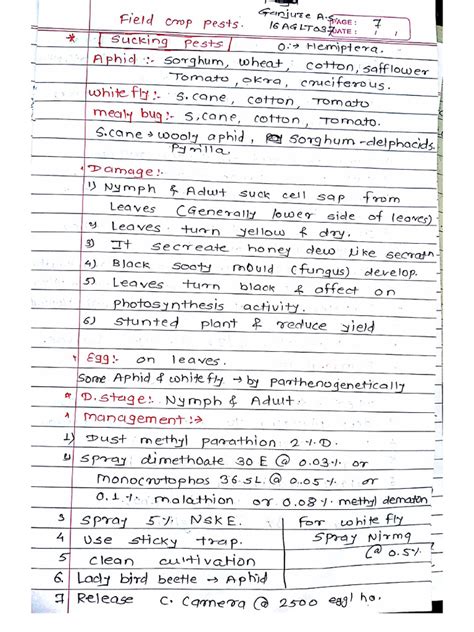 Ganjure A.S
Field crop pests. 16AGLT037 PAGE: 7
DATE: / /
* Sucking pests O:→ Hemiptera.
Aphid :- sorghum, wheat, cotton, safflower
Tomato, okra, cruciferous.
white fly:- S.cane, cotton, Tomato
mealy bug:- s.cane, cotton, Tomato.
S.cane → wooly aphid, Sorghum - delphacids.
Pyrilla
Damage:-
1) Nymph & Adult suck cell sap from
Leaves (Generally lower side of leaves)
2) Leaves turn yellow & dry.
3) It secreate honey dew like secratn
4) Black sooty mould (fungus) develop.
5) Leaves turn black & affect on
photosynthesis activity.
6) stunted plant & reduce yield
Egg:- on leaves.
Some Aphid & whitefly → by parthenogenetically
D. stage:- Nymph & Adult.
management :→
1) Dust methyl parathion 2 %. D.
2) spray dimethoate 30 E @ 0.03 %. or
monocrotophos 36 SL @ 0.05 %. or
0.1 %. malathion or 0.08 %. methyl dematon
3 spray 5 %. NSKE. for white fly
4 use sticky trap. Spray Nirma
5 clean cultivation (@ 0.5 %.
6. Lady bird beetle → Aphid
7 Release C. Carnera @ 2500 egg/ ha.